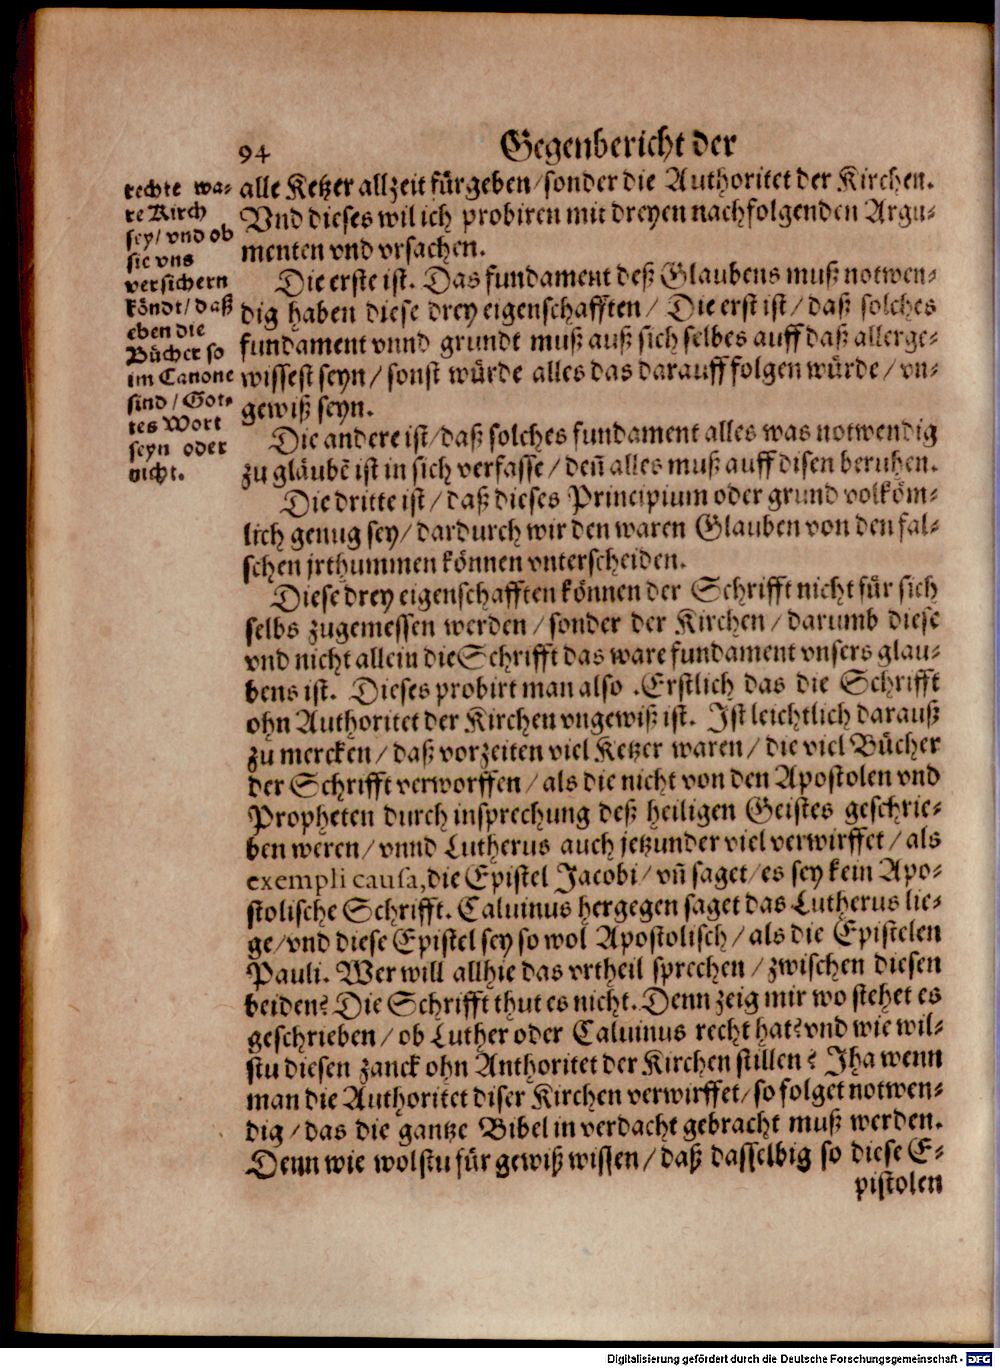 94 Gegenbericht der
rechte wa-
re Kirch
sey/ vnd ob
sie vns
versichern
köndt/ daß
eben die
Bücher so
im Canone
sind/ Got-
tes Wort
seyn oder
nicht.
alle Ketzer allzeit fürgeben/ sonder die Authoritet der Kirchen.
Vnd dieses wil ich probiren mit dreyen nachfolgenden Argu-
menten vnd vrsachen.
Die erste ist. Das fundament deß Glaubens muß notwen-
dig haben diese drey eigenschafften/ Die erst ist/ daß solches
fundament vnnd grundt muß auß sich selbes auff daß allerge-
wissest seyn/ sonst würde alles das darauff folgen würde/ vn-
gewiß seyn.
Die andere ist/ daß solches fundament alles was notwendig
zu gläubē ist in sich verfasse/ deñ alles muß auff disen beruhen.
Die dritte ist/ daß dieses Principium oder grund volköm-
lich genug sey/ dardurch wir den waren Glauben von den fal-
schen jrthummen können vnterscheiden.
Diese drey eigenschafften können der Schrifft nicht für sich
selbs zugemessen werden/ sonder der Kirchen/ darumb diese
vnd nicht allein die Schrifft das ware fundament vnsers glau-
bens ist. Dieses probirt man also. Erstlich das die Schrifft
ohn Authoritet der Kirchen vngewiß ist. Ist leichtlich darauß
zu mercken/ daß vorzeiten viel Ketzer waren/ die viel Bücher
der Schrifft verworffen/ als die nicht von den Apostolen vnd
Propheten durch insprechung deß heiligen Geistes geschrie-
ben weren/ vnnd Lutherus auch jetzunder viel verwirffet/ als
exempli causa, die Epistel Jacobi/ vñ saget/ es sey kein Apo-
stolische Schrifft. Caluinus hergegen saget das Lutherus lie-
ge/ vnd diese Epistel sey so wol Apostolisch/ als die Epistelen
Pauli. Wer will allhie das vrtheil sprechen/ zwischen diesen
beiden? Die Schrifft thut es nicht. Denn zeig mir wo stehet es
geschrieben/ ob Luther oder Caluinus recht hat? vnd wie wil-
stu diesen zanck ohn Anthoritet der Kirchen stillen? Iha wenn
man die Authoritet diser Kirchen verwirffet/ so folget notwen-
dig/ das die gantze Bibel in verdacht gebracht muß werden.
Denn wie wolstu für gewiß wissen/ daß dasselbig so diese E-
pistolen
Digitalisierung gefördert durch die Deutsche Forschungsgemeinschaft - DFG